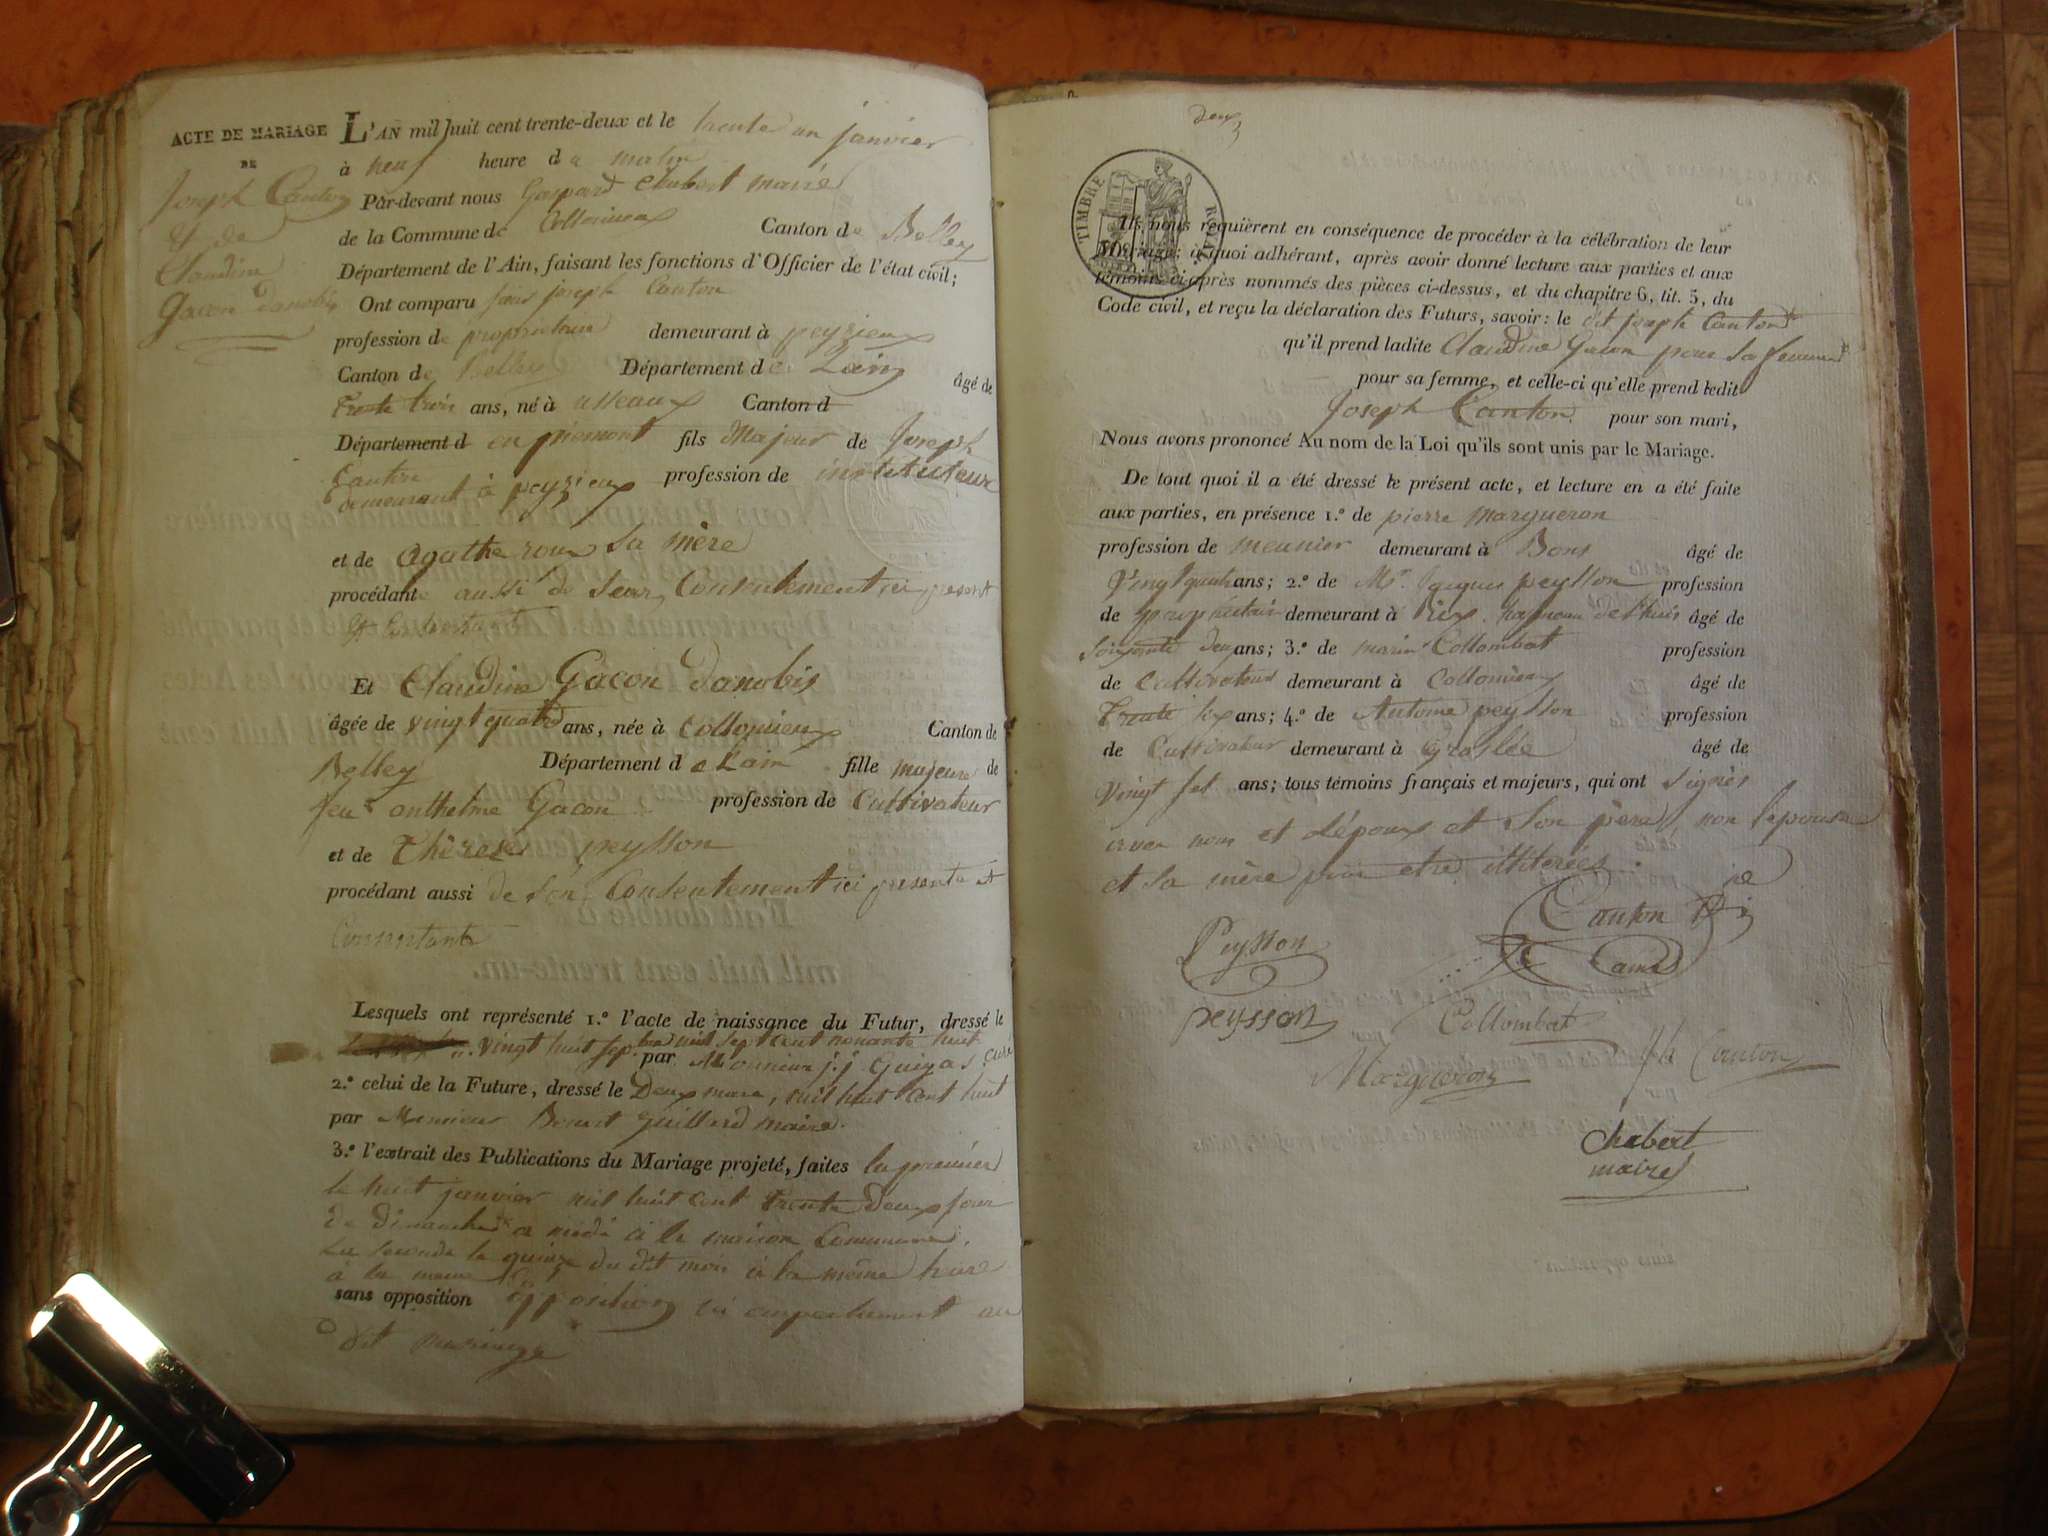 ACTE DE MARIAGE
DE
Joseph Canton
Et de
Claudine
Gacon danobis
L'AN mil huit cent trente-deux et le trente un janvier
à neuf heure du matin
Par-devant nous Gaspard Chabert maire
de la Commune de Collomieux Canton de Belley
Département de l'Ain, faisant les fonctions d'Officier de l'état civil;
Ont comparu joseph Canton
profession de proprietaire demeurant à peyzieux
Canton de Belley Département de Lain âgé de
trente trois ans, né à usseaux Canton d
Département d en piemont fils Majeur de Joseph
Canton profession de instituteur
demeurant à peyzieux
et de Agathe roux sa mère
procédant aussi de leur Consentement ici present
et Consentant
Et Claudine Gacon danobis
âgée de vingt quatre ans, née à Collomieux Canton de
Belley Département de Lain fille majeure de
feu anthelme Gacon profession de Cultivateur
et de Thérèse peysson
procédant aussi de son Consentement ici presente et
Consentante
Lesquels ont représenté 1.º l'acte de naissance du Futur, dressé le
vingt huit sep.bre mil sept cent nonante huit
par Monsieur j.j. Guigas curé
2.º celui de la Future, dressé le Deux mars, mil huit cent huit
par Monsieur Benoit Guillard maire.
3.º l'extrait des Publications du Mariage projeté, faites la premier
le huit janvier mil huit cent trente Deux jour
de dimanche a midi à la maison Commune.
La seconde le quinze du dit mois à la même hure
à la meme
sans opposition opposition ni empechement au
dit mariage
deux
TIMBRE ROYAL
Ils nous requièrent en conséquence de procéder à la célébration de leur
Mariage; à quoi adhérant, après avoir donné lecture aux parties et aux
témoins ci-après nommés des pièces ci-dessus, et du chapitre 6, tit. 5, du
Code civil, et reçu la déclaration des Futurs, savoir: le dit joseph Canton
qu'il prend ladite Claudine Gacon pour sa femme
pour sa femme, et celle-ci qu'elle prend ledit
Joseph Canton pour son mari,
Nous avons prononcé Au nom de la Loi qu'ils sont unis par le Mariage.
De tout quoi il a été dressé le présent acte, et lecture en a été faite
aux parties, en présence 1.º de pierre Margueron
profession de meunier demeurant à Bons âgé de
vingt quatre ans; 2.º de Mr. Jaques peysson profession
de proprietaire demeurant à Rix hameau de Lhuis âgé de
soixante deux ans; 3.º de marin Collombat profession
de Cultivateur demeurant à Collomieux âgé de
Trente six ans; 4.º de Antoine peysson profession
de Cultivateur demeurant à Groslée âgé de
vingt set ans; tous témoins français et majeurs, qui ont signés
avec nous et Lépoux et Son père, non Lepouse
et sa mère pour etre illiterées.
Canton
Peysson
peysson
Collombat
Margueron
Canton
Chabert
maire